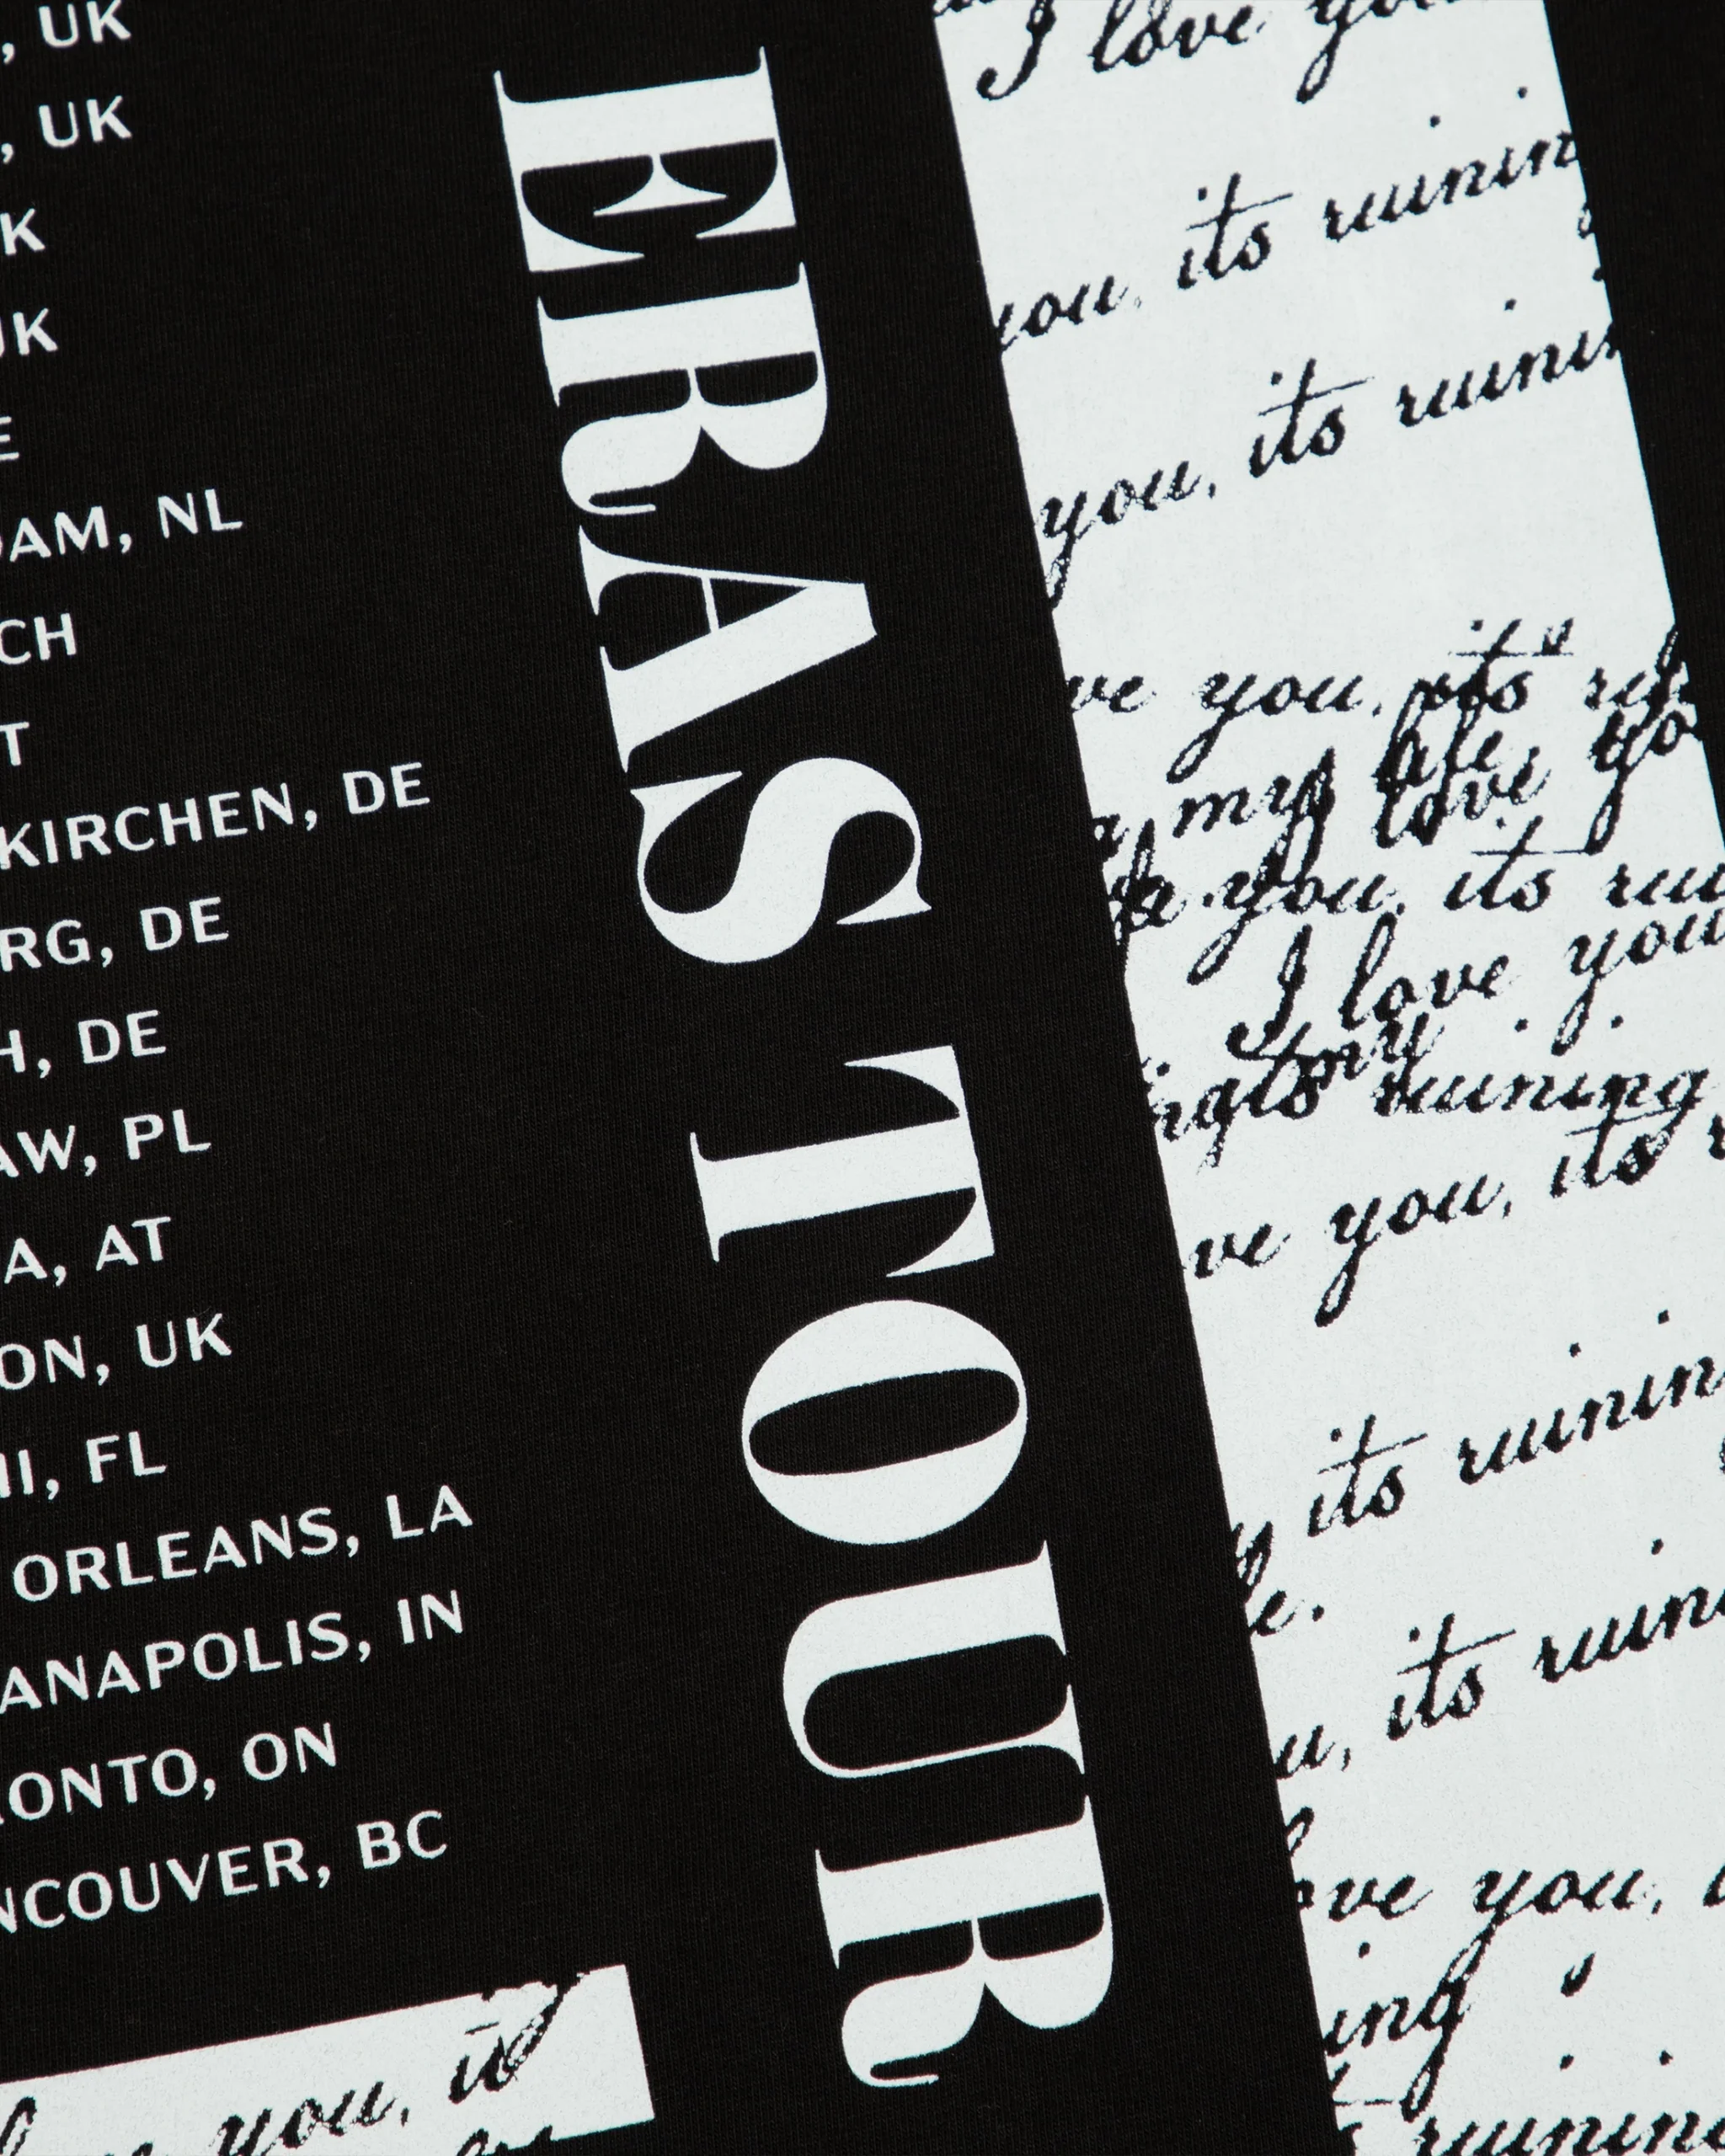 , UK
, UK
K
UK
E
DAM, NL
CH
T
KIRCHEN, DE
RG, DE
H, DE
AW, PL
A, AT
ON, UK
MI, FL
ORLEANS, LA
ANAPOLIS, IN
RONTO, ON
NCOUVER, BC
you,
ERAS TOUR
I love you
you, its ruining
you, its ruinin
ve you, its
my life,
love yo
you, its rui
I love you
my
its ruining
ve you, its
its ruining
fe.
u, its ruini
ove you,
ing
ruining